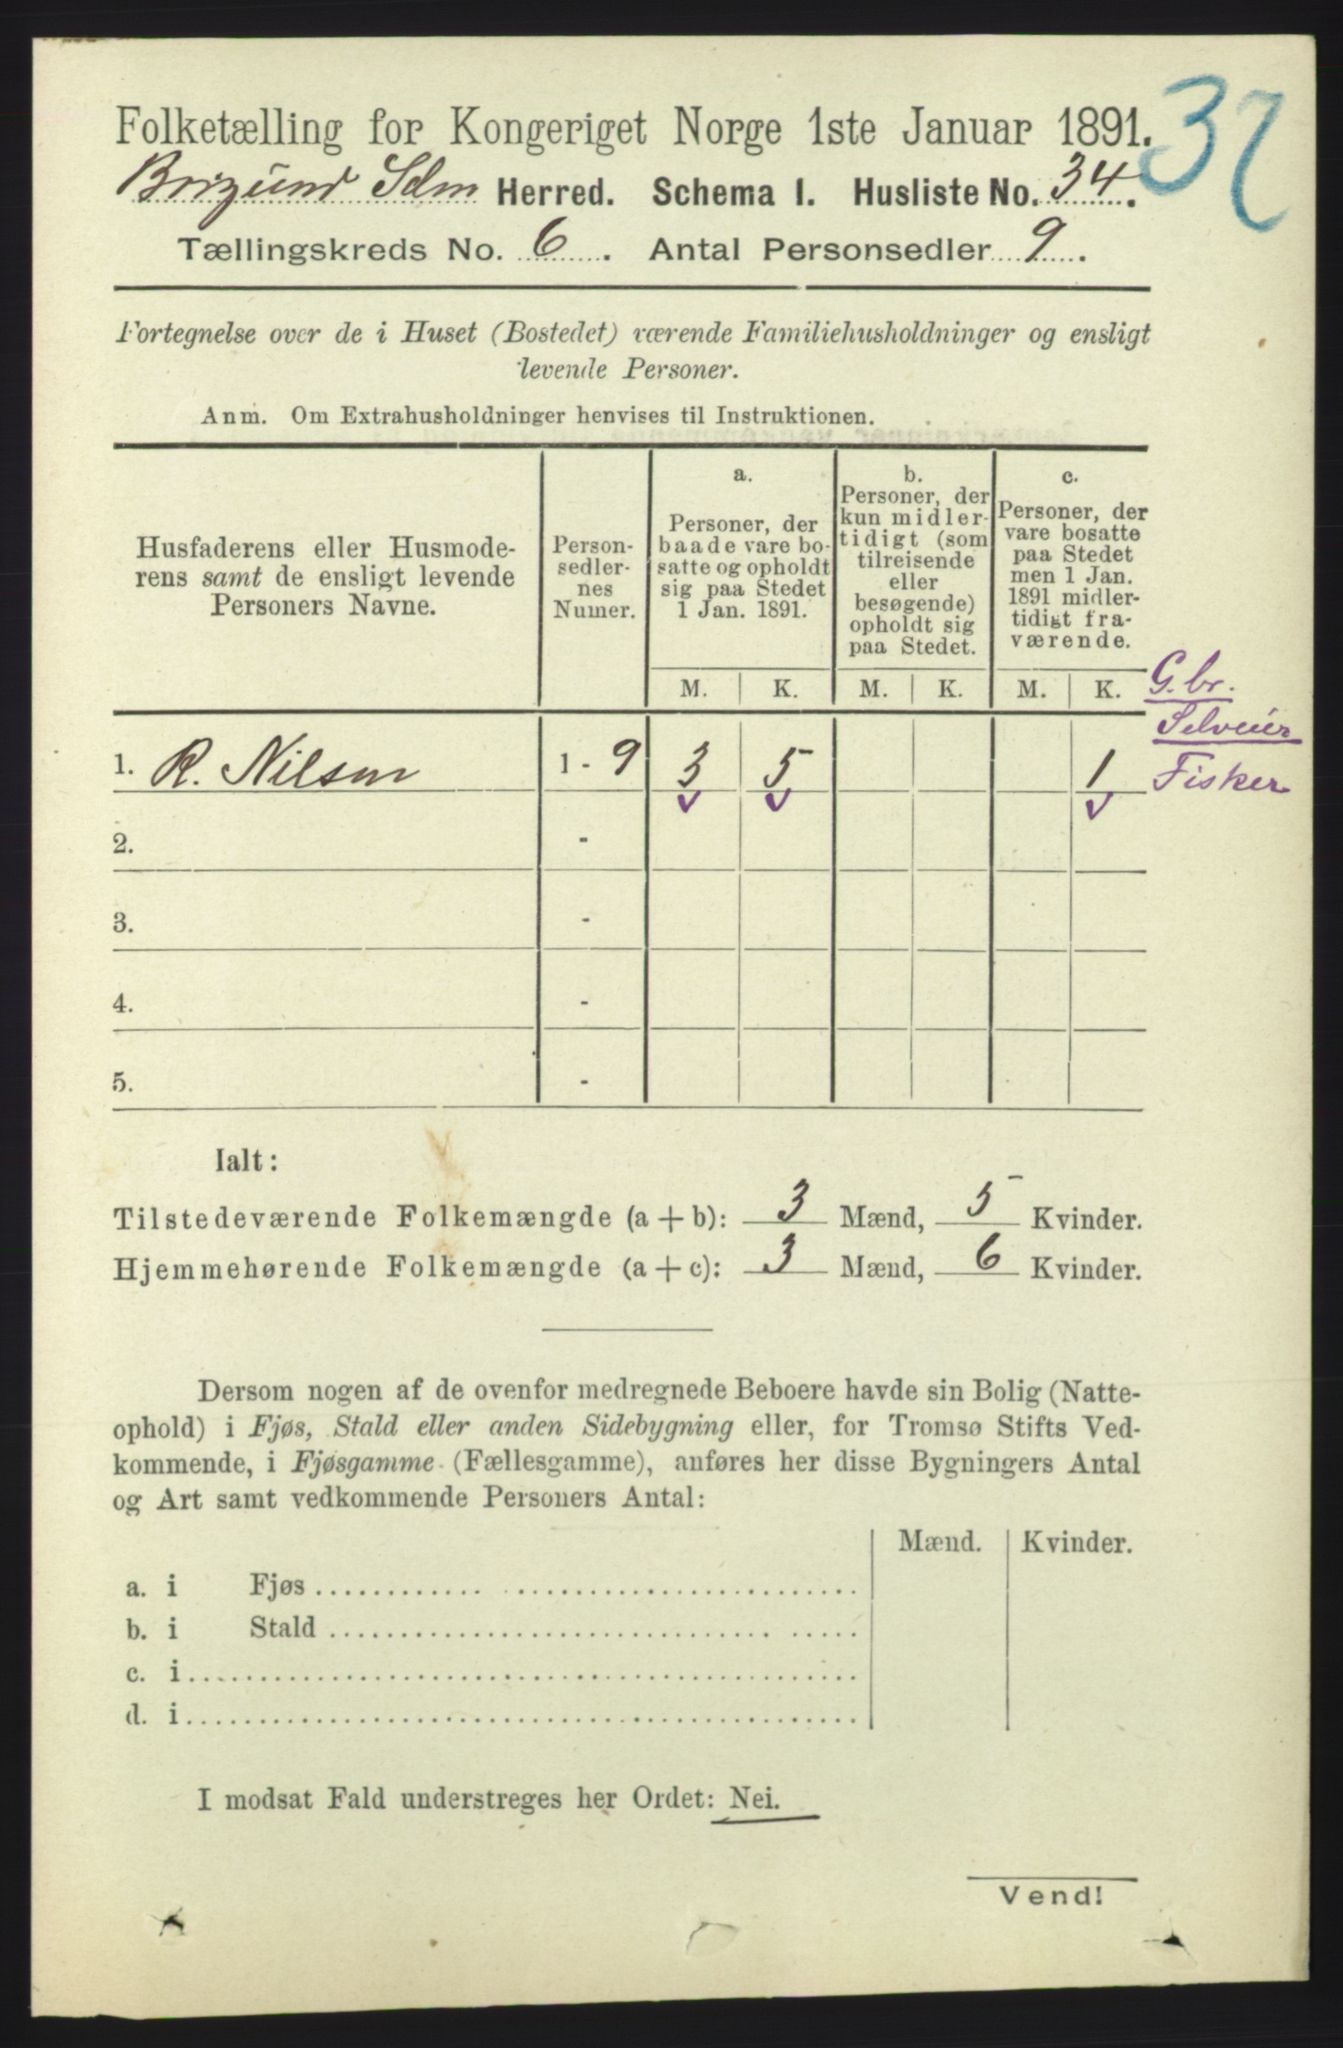 Folketælling for Kongeriget Norge 1ste Januar 1891.
32
Borgund Sdm Herred. Schema I. Husliste No. 34.
Tællingskreds No. 6. Antal Personsedler 9.
Fortegnelse over de i Huset (Bostedet) værende Familiehusholdninger og ensligt
levende Personer.
Anm. Om Extrahusholdninger henvises til Instruktionen.
Husfaderens eller Husmode-
rens samt de ensligt levende
Personers Navne.
Person-
sedler-
nes
Numer.
a.
Personer, der
baade vare bo-
satte og opholdt
sig paa Stedet
1 Jan. 1891.
b.
Personer, der
kun midler-
tidigt (som
tilreisende
eller
besøgende)
opholdt sig
paa Stedet.
c.
Personer, der
vare bosatte
paa Stedet
men 1 Jan.
1891 midler-
tidigt fra-
værende.
M. K. M. K. M. K.
G.br.
Selveier
Fisker
1. R. Nilsen 1 - 9 3 5 1
2. -
3. -
4. -
5. -
Ialt:
Tilstedeværende Folkemængde (a + b): 3 Mænd, 5 Kvinder.
Hjemmehørende Folkemængde (a + c): 3 Mænd, 6 Kvinder.
Dersom nogen af de ovenfor medregnede Beboere havde sin Bolig (Natte-
ophold) i Fjøs, Stald eller anden Sidebygning eller, for Tromsø Stifts Ved-
kommende, i Fjøsgamme (Fællesgamme), anføres her disse Bygningers Antal
og Art samt vedkommende Personers Antal:
Mænd. Kvinder.
a. i Fjøs
b. i Stald
c. i
d. i
I modsat Fald understreges her Ordet: Nei.
Vend!